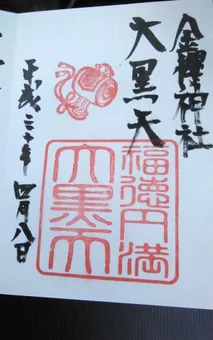 金神社
大黒天
福徳円満
大黒天
平成三十年四月八日